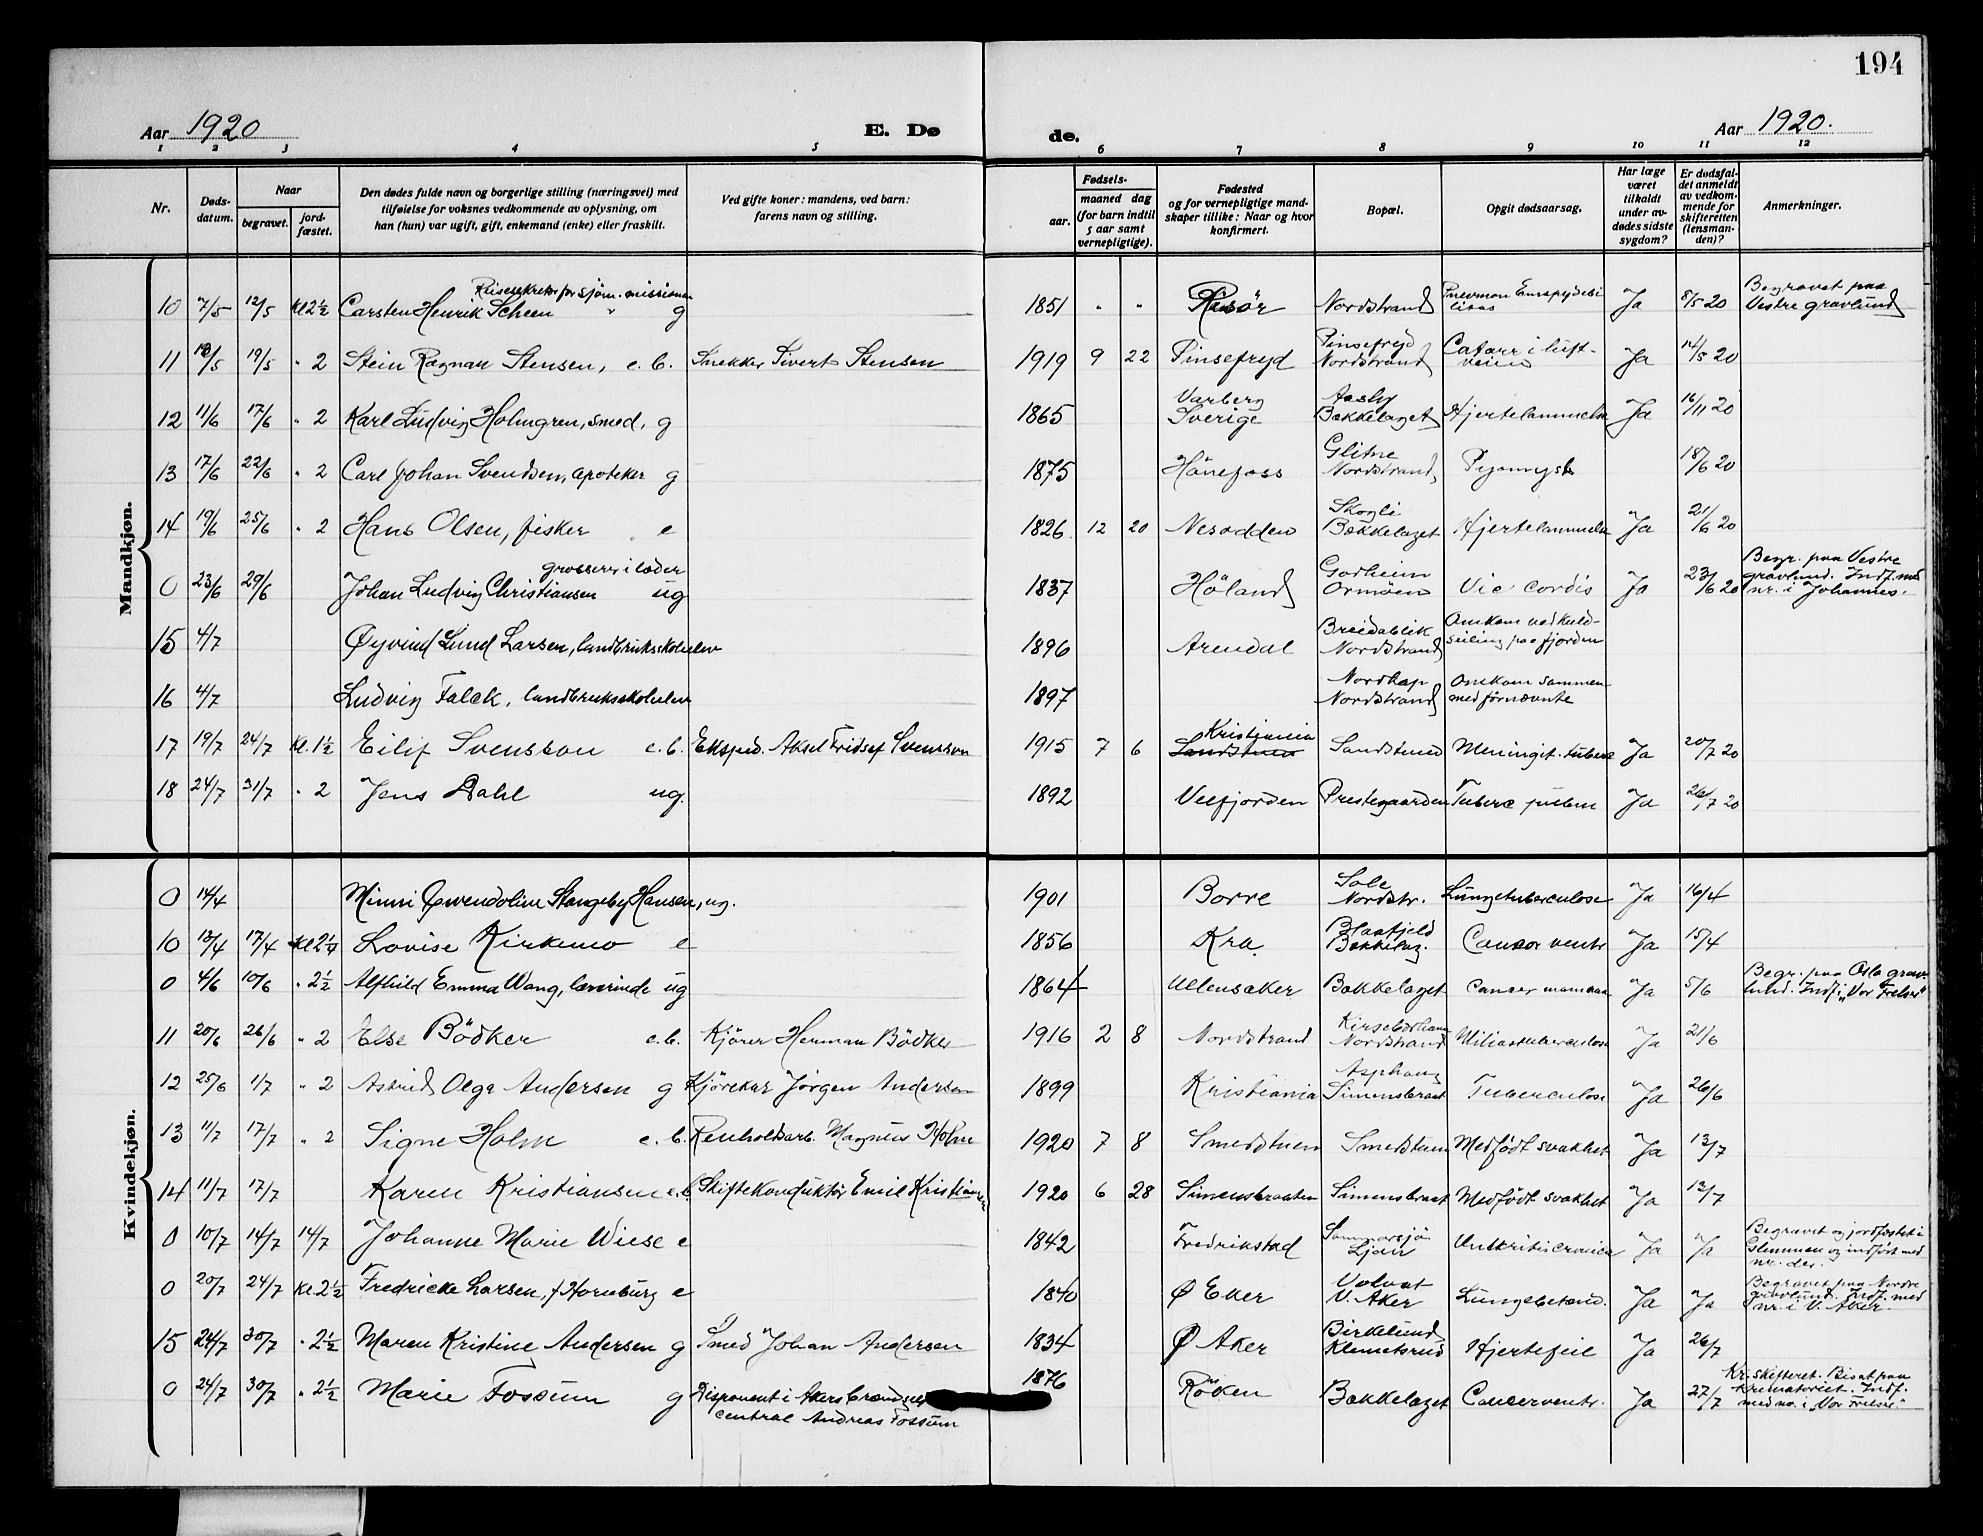 194
Aar 1920 E. Dø de. Aar 1920.
1 2 3 4 5 6 7 8 9 10 11 12
Nr. Døds-datum. Naar begravet. jord-fæstet. Den dødes fulde navn og borgerlige stilling (næringsvei) med tilføielse for voksnes vedkommende av oplysning, om han (hun) var ugift, gift, enkemand (enke) eller fraskilt. Ved gifte koner: mandens, ved barn: farens navn og stilling. Fødsels- aar. maaned dag (for barn indtil 5 aar samt vernepligtige). Fødested og for vernepligtige mand-skaper tillike: Naar og hvor konfirmert. Bopæl. Opgit dødsaarsag. Har læge været tilkaldt under av-dødes sidste sygdom? Er dødsfal-det anmeldt av vedkom-mende for skifteretten (lensman-den)? Anmerkninger.
Mandkjøn.
10 7/5 12/5 Kl 2½ Carsten Henrik Scheen g 1851 " " Risør Nordstrand Ja 8/5 20 Begravet paa Vestre gravlund
11 19/5 " 2 Stein Ragnar Stensen, e. b. Snekker Sivert Stensen 1919 9 22 Pinsefryd Pinsefryd Nordstrand Catarr i luft-veiene Ja 14/5 20
12 11/6 17/6 " 2 Karl Ludvig Holmgren, smed, g 1865 Varberg Sverige Aasly Bækkelaget Hjertelammelse Ja 16/11 20
13 17/6 22/6 " 2 Carl Johan Svendsen, apoteker g 1875 Hönefoss Glitne Nordstrand 18/6 20
14 19/6 25/6 " 2 Hans Olsen, fisker e 1826 12 20 Nesodden Skogli Bækkelaget Hjertelammelse Ja 21/6 20
0 23/6 29/6 Johan Ludvig Christiansen grosserer i læder ug 1837 Höland Ormøen Vic cordis Ja 23/6 20 Begr. paa Vestre gravlund. Indf. med nr. i Johannes.
15 4/7 Øyvind Lund Larsen, landbruksskoleelev 1896 Arendal Breidablik Nordstrand Omkom ved kuld-seiling paa fjorden
16 4/7 Ludvig Falck, landbruksskoleelev 1897 Nordkap Nordstrand Omkom sammen med förnævnte
17 19/7 24/7 Kl. 1½ Eilif Svensson e. b. Eksped. Aksel Fridsef Svensson 1915 7 6 Kristiania Sandstuen Sandstuen Meningit. tuberc Ja 20/7 20
18 24/7 31/7 " 2 Jens Dahl ug. 1892 Velfjorden Prestegaarden Tuberc pulm Ja 26/7 20
Kvindekjøn.
0 14/4 Minni Gwendoline Stangeby Hansen, ug. 1901 Borre Sole Nordstr. Lungetuberculose Ja 16/4
10 13/4 17/4 Kl 2¼ Lovise Kirkemo e 1856 Kra. Blaafjeld Bækkelag. Cancer ventr Ja 15/4
0 4/6 10/6 " 2½ Alfhild Emma Wang, lærerinde ug 1864 Ullensaker Bækkelaget Cancer mammae Ja 5/6 Begr. paa Oslo grav-lund. Indf. i "Vor Frelser"
11 20/6 26/6 " 2 Else Bödker e. b. Kjörer Herman Bödker 1916 2 8 Nordstrand Nordstrand Miliærtuberculose Ja 21/6
12 25/6 1/7 " 2 Astrid Olga Andersen g Kjörekar Jörgen Andersen 1899 Kristiania Asphaug Simensbraat Tuberculose Ja 26/6
13 11/7 17/7 " 2 Signe Holm e. b. Renholdsarb. Magnus Holm 1920 7 8 Smedstuen Smedstuen Medfödt svakhet Ja 13/7
14 11/7 17/7 Karen Kristiansen e. b. Skiftekonduktör Emil Kristiansen 1920 6 28 Simensbraaten Simensbraat Medfödt svakhet Ja 12/7
0 10/7 14/7 14/7 Johanne Marie Wiese e 1842 Fredrikstad Ljan Ja Ja Begravet og jordfæstet i Glemmen og indført med nr. der.
0 20/7 24/7 Kl. 2½ Fredricke Larsen, f. Hornburg e 1840 Ø Eker Volvat V. Aker Lungebetænd. Ja Ja Begravet paa Nordre gravlund. Indf. med nr. i V. Aker.
15 24/7 30/7 " 2½ Maren Kristine Andersen g Smed Johan Andersen 1834 Ø Aker Birkelund Klemetsrud Hjertefeil Ja 26/7
0 24/7 30/7 " 2½ Marie Fossum g Disponent i Akers brændsels central Andreas Fossum 1876 Röken Bækkelaget Cancer ventr. Ja 27/7 Kr. skifteret. Bisat paa krematoriet. Indf. med no. i "Vor Frelser."